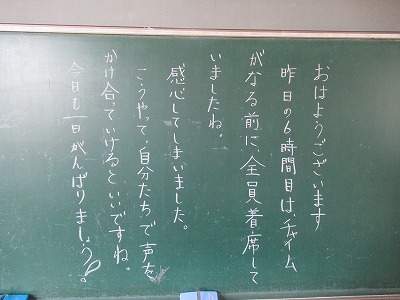 おはようございます
昨日の6時間目は、チャイム
がなる前に、全員着席して
いましたね。
感心してしまいました。
こうやって、自分たちで声を
かけ合っていけるといいですね。
今日も一日がんばりましょう。